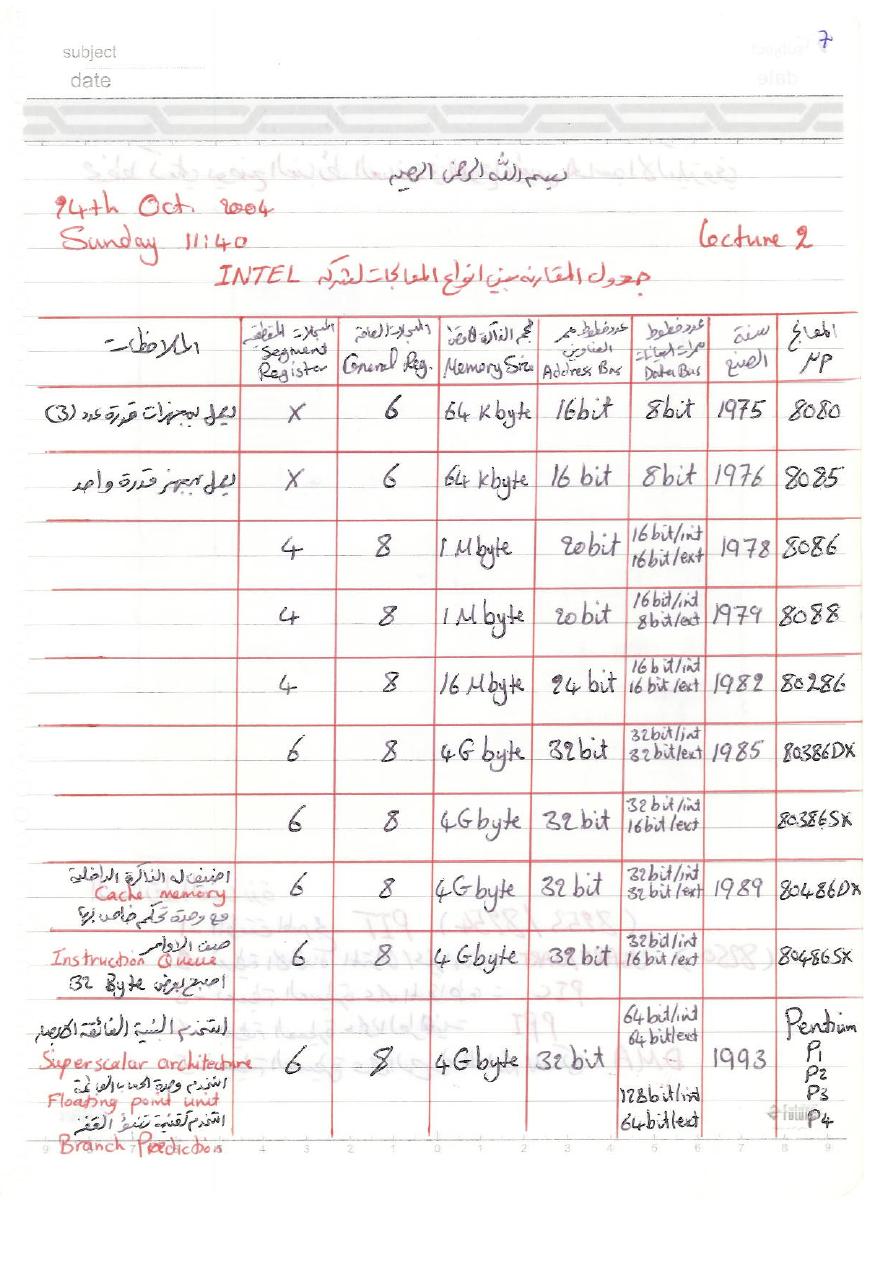 7
subject
date
بسم الله الرحمن الرحيم
24th Oct. 2004
Sunday 11:40
Lecture 2
جدول المقارنة بين انواع المعالجات لشركة INTEL
المعالج µP
سنة الصنع
عدد خطوط ممرات البيانات Data Bus
عدد خطوط ممر العناوين Address Bus
حجم الذاكرة Memory Size
المسجلات العامة General Reg.
المسجلات المقطعية Segment Register
الملاحظات
8080 1975 8bit 16bit 64 Kbyte 6 X يعمل بمجهزات قدرة عدد (3)
8085 1976 8bit 16 bit 64 Kbyte 6 X يعمل بمجهز قدرة واحد
8086 1978 16bit/int 16bit/ext 20bit 1 Mbyte 8 4
8088 1979 16bit/int 8bit/ext 20 bit 1 Mbyte 8 4
80286 1982 16 bit/int 16 bit/ext 24 bit 16 Mbyte 8 4
80386DX 1985 32bit/int 32bit/ext 32bit 4G byte 8 6
80386SX 32 bit/int 16bit/ext 32bit 4Gbyte 8 6
80486DX 1989 32bit/int 32bit/ext 32 bit 4Gbyte 8 6
اضيف له الذاكرة الداخلية
Cache memory
مع وحدة تحكم خاص بها
80486SX 32bit/int 16bit/ext 32bit 4 Gbyte 8 6
صف الاوامر
Instruction Queue
اصبح بعرض 32 Byte
Pentium
P1
P2
P3
P4
1993
64bit/int
64bit/ext
128bit/int
64bit/ext
32bit 4Gbyte 8 6
استخدم البنية الفائقة
Superscalar architecture
استخدم وحدة الحساب العائمة
Floating point unit
استخدم تقنية تنبؤ القفز
Branch Prediction